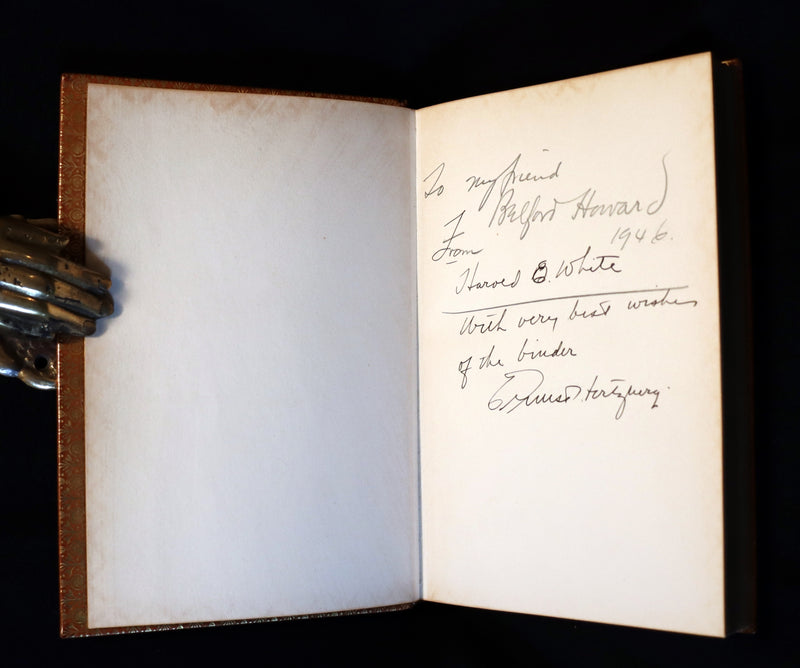 To my friend
Belford Howard
1946.
From
Harold E. White
With very best wishes
of the binder
Ernst Hertzberg.